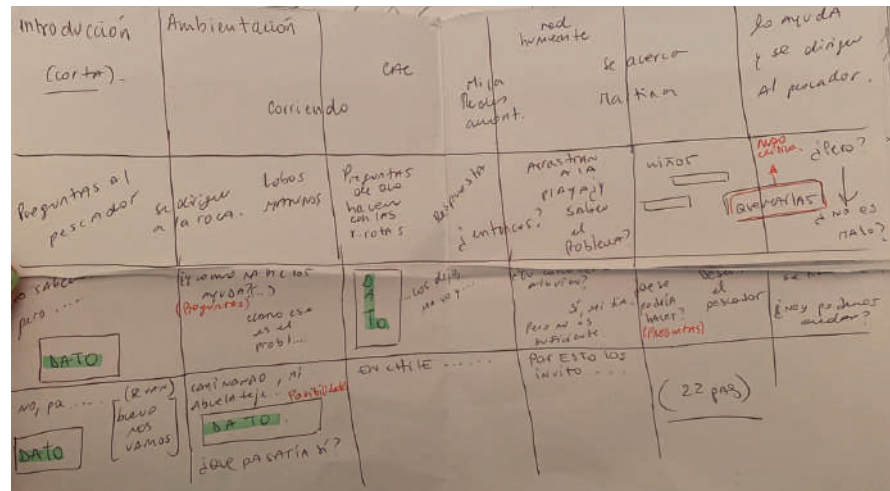 Introducción
(corta).
Ambientación
Corriendo
CAE
Mira
Redes
red
humeante
Se acerca
Martian
lo ayuda
y se dirigen
Al pescador.
Preguntas al
pescador
se dirigen
a la roca.
Lobos
marinos
Preguntas
de que
hacen
con las
r. rotas
Respuesta
¿entonces?
Arrastran
a la
playa ¿y
saben
el
problema?
niños
Quemarlas
¿Pero?
¿No es
malo?
no saben
pero ....
DATO
ayuda? (...)
(Preguntas)
como ese
es el
probl...
DATO
...los dejo,
me voy...
Sí, mi tía.
Pero no es
suficiente.
podría
hacer?
(Preguntas)
el
pescador
¿Nos podemos
quedar?
no, pa.....
DATO
bueno
nos
vamos
caminando, mi
Abuela teje..
DATO.
¿Que pasaría si?
en CHILE ......
Por esto los
invito ...
(22 pag)